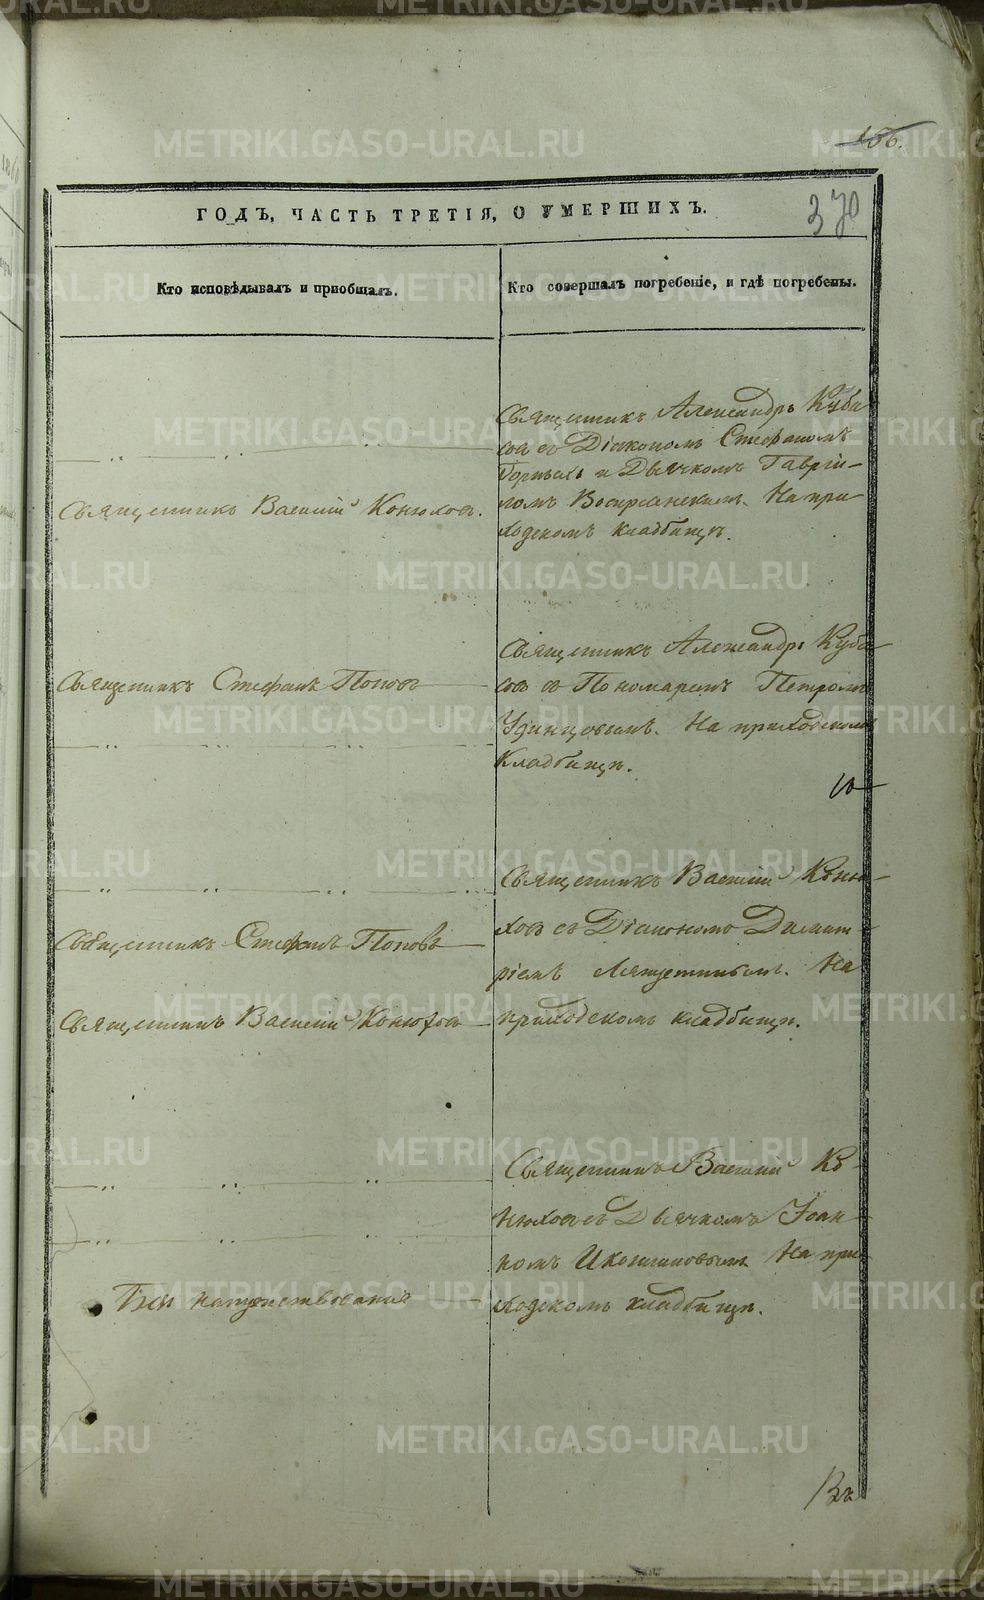 METRIKI.GASO-URAL.RU
156.
370
ГОДЪ, ЧАСТЬ ТРЕТІЯ, О УМЕРШИХЪ.
Кто исповѣдывалъ и пріобщалъ.
Кто совершалъ погребеніе, и гдѣ погребены.
Священникъ Василій Конюховъ.
Священникъ Александръ Куба-
совъ съ Діакономъ Стефаномъ
и Дьячкомъ Гаврії-
ломъ Воскресенскимъ. На при-
ходскомъ кладбищѣ.
Священникъ Стефанъ Поповъ
Священникъ Александръ Куба-
совъ съ Пономаремъ Петромъ
Удинцовымъ. На приходскомъ
кладбищѣ.
Священникъ Стефанъ Поповъ
Священникъ Василій Конюховъ
Священникъ Василій Коню-
ховъ съ Діакономъ Димит-
ріемъ На
приходскомъ кладбищѣ.
Безъ напутствованія
Священникъ Василій Ко-
нюховъ съ Дьячкомъ Іоан-
номъ Иконниковымъ. На при-
ходскомъ кладбищѣ.